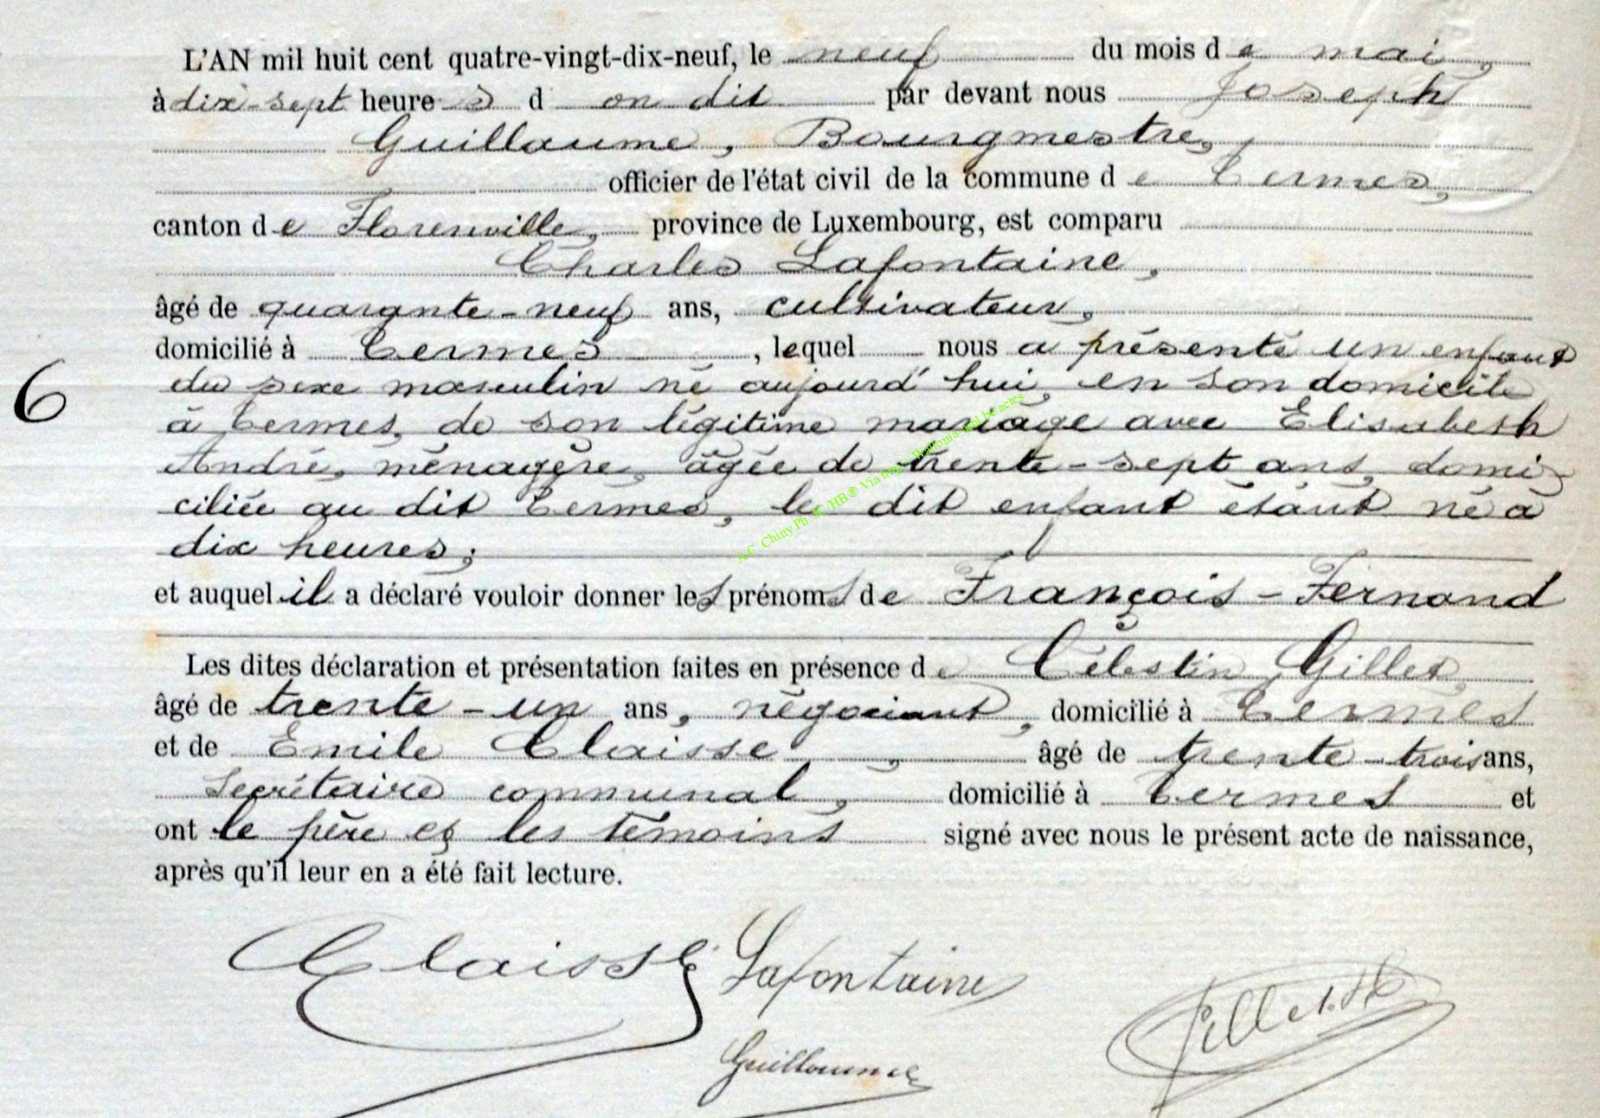 L'AN mil huit cent quatre-vingt-dix-neuf, le neuf du mois de mai,
à dix-sept heures d on dit par devant nous Joseph
Guillaume, Bourgmestre,
officier de l'état civil de la commune de Termes,
canton de Florenville, province de Luxembourg, est comparu
Charles Lafontaine,
âgé de quarante-neuf ans, cultivateur,
domicilié à Termes, lequel nous a présenté un enfant
6
du sexe masculin né aujourd'hui, en son domicile
à Termes, de son légitime mariage avec Elisabeth
André, ménagère, âgée de trente-sept ans, domi-
ciliée au dit Termes, le dit enfant étant né à
dix heures;
et auquel il a déclaré vouloir donner les prénoms de François-Fernand
Les dites déclaration et présentation faites en présence de Célestin Gilles,
âgé de trente-un ans, négociant, domicilié à Termes
et de Emile Claisse, âgé de trente-trois ans,
Secrétaire communal, domicilié à Termes et
ont le père et les témoins signé avec nous le présent acte de naissance,
après qu'il leur en a été fait lecture.
Claisse Lafontaine
Guillaume